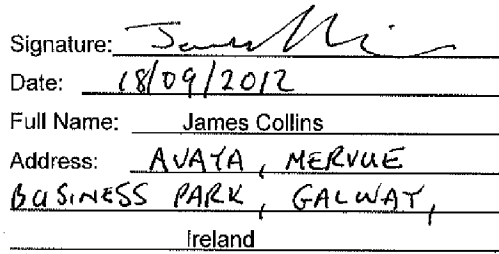 Signature: James Collins
Date: 18/09/2012
Full Name: James Collins
Address: AVAYA, MERVUE
BUSINESS PARK, GALWAY,
Ireland